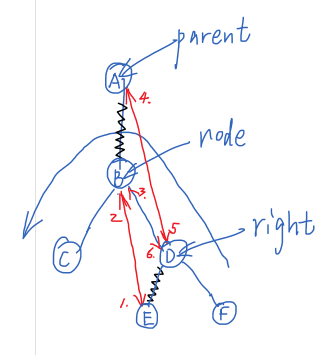 parent
A
4.
node
B
3.
2
right
5
6.
C
D
1.
E
F